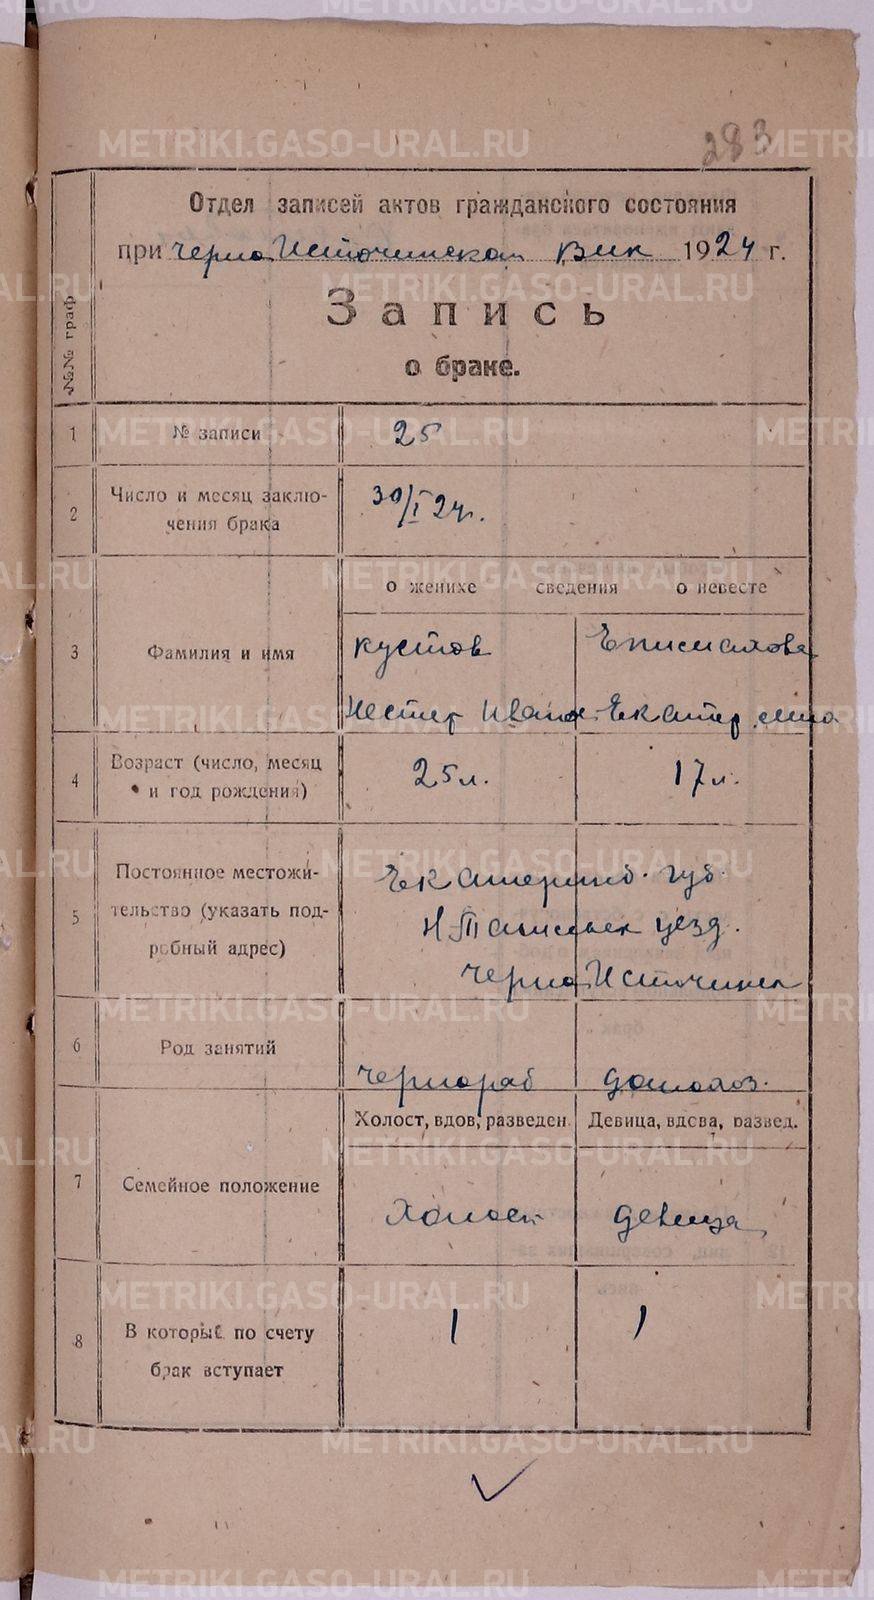 283
Отдел записей актов гражданского состояния
при Черно Источинском Вик 1924 г.
Запись
о браке.
№№ граф
1 № записи 25
2 Число и месяц заключения брака 30/I 24г.
о женихе сведения о невесте
3 Фамилия и имя Кустов
Нестер Иванов. Екатерина
4 Возраст (число, месяц и год рождения) 25 л. 17 л.
5 Постоянное местожительство (указать подробный адрес) Екатеринб. губ.
Н Тагильск уезд.
Черно Источинск
6 Род занятий Чернораб домохоз.
Холост, вдов, разведен. Девица, вдова, развед.
7 Семейное положение Холост девица
8 В который по счету брак вступает 1 1
METRIKI.GASO-URAL.RU